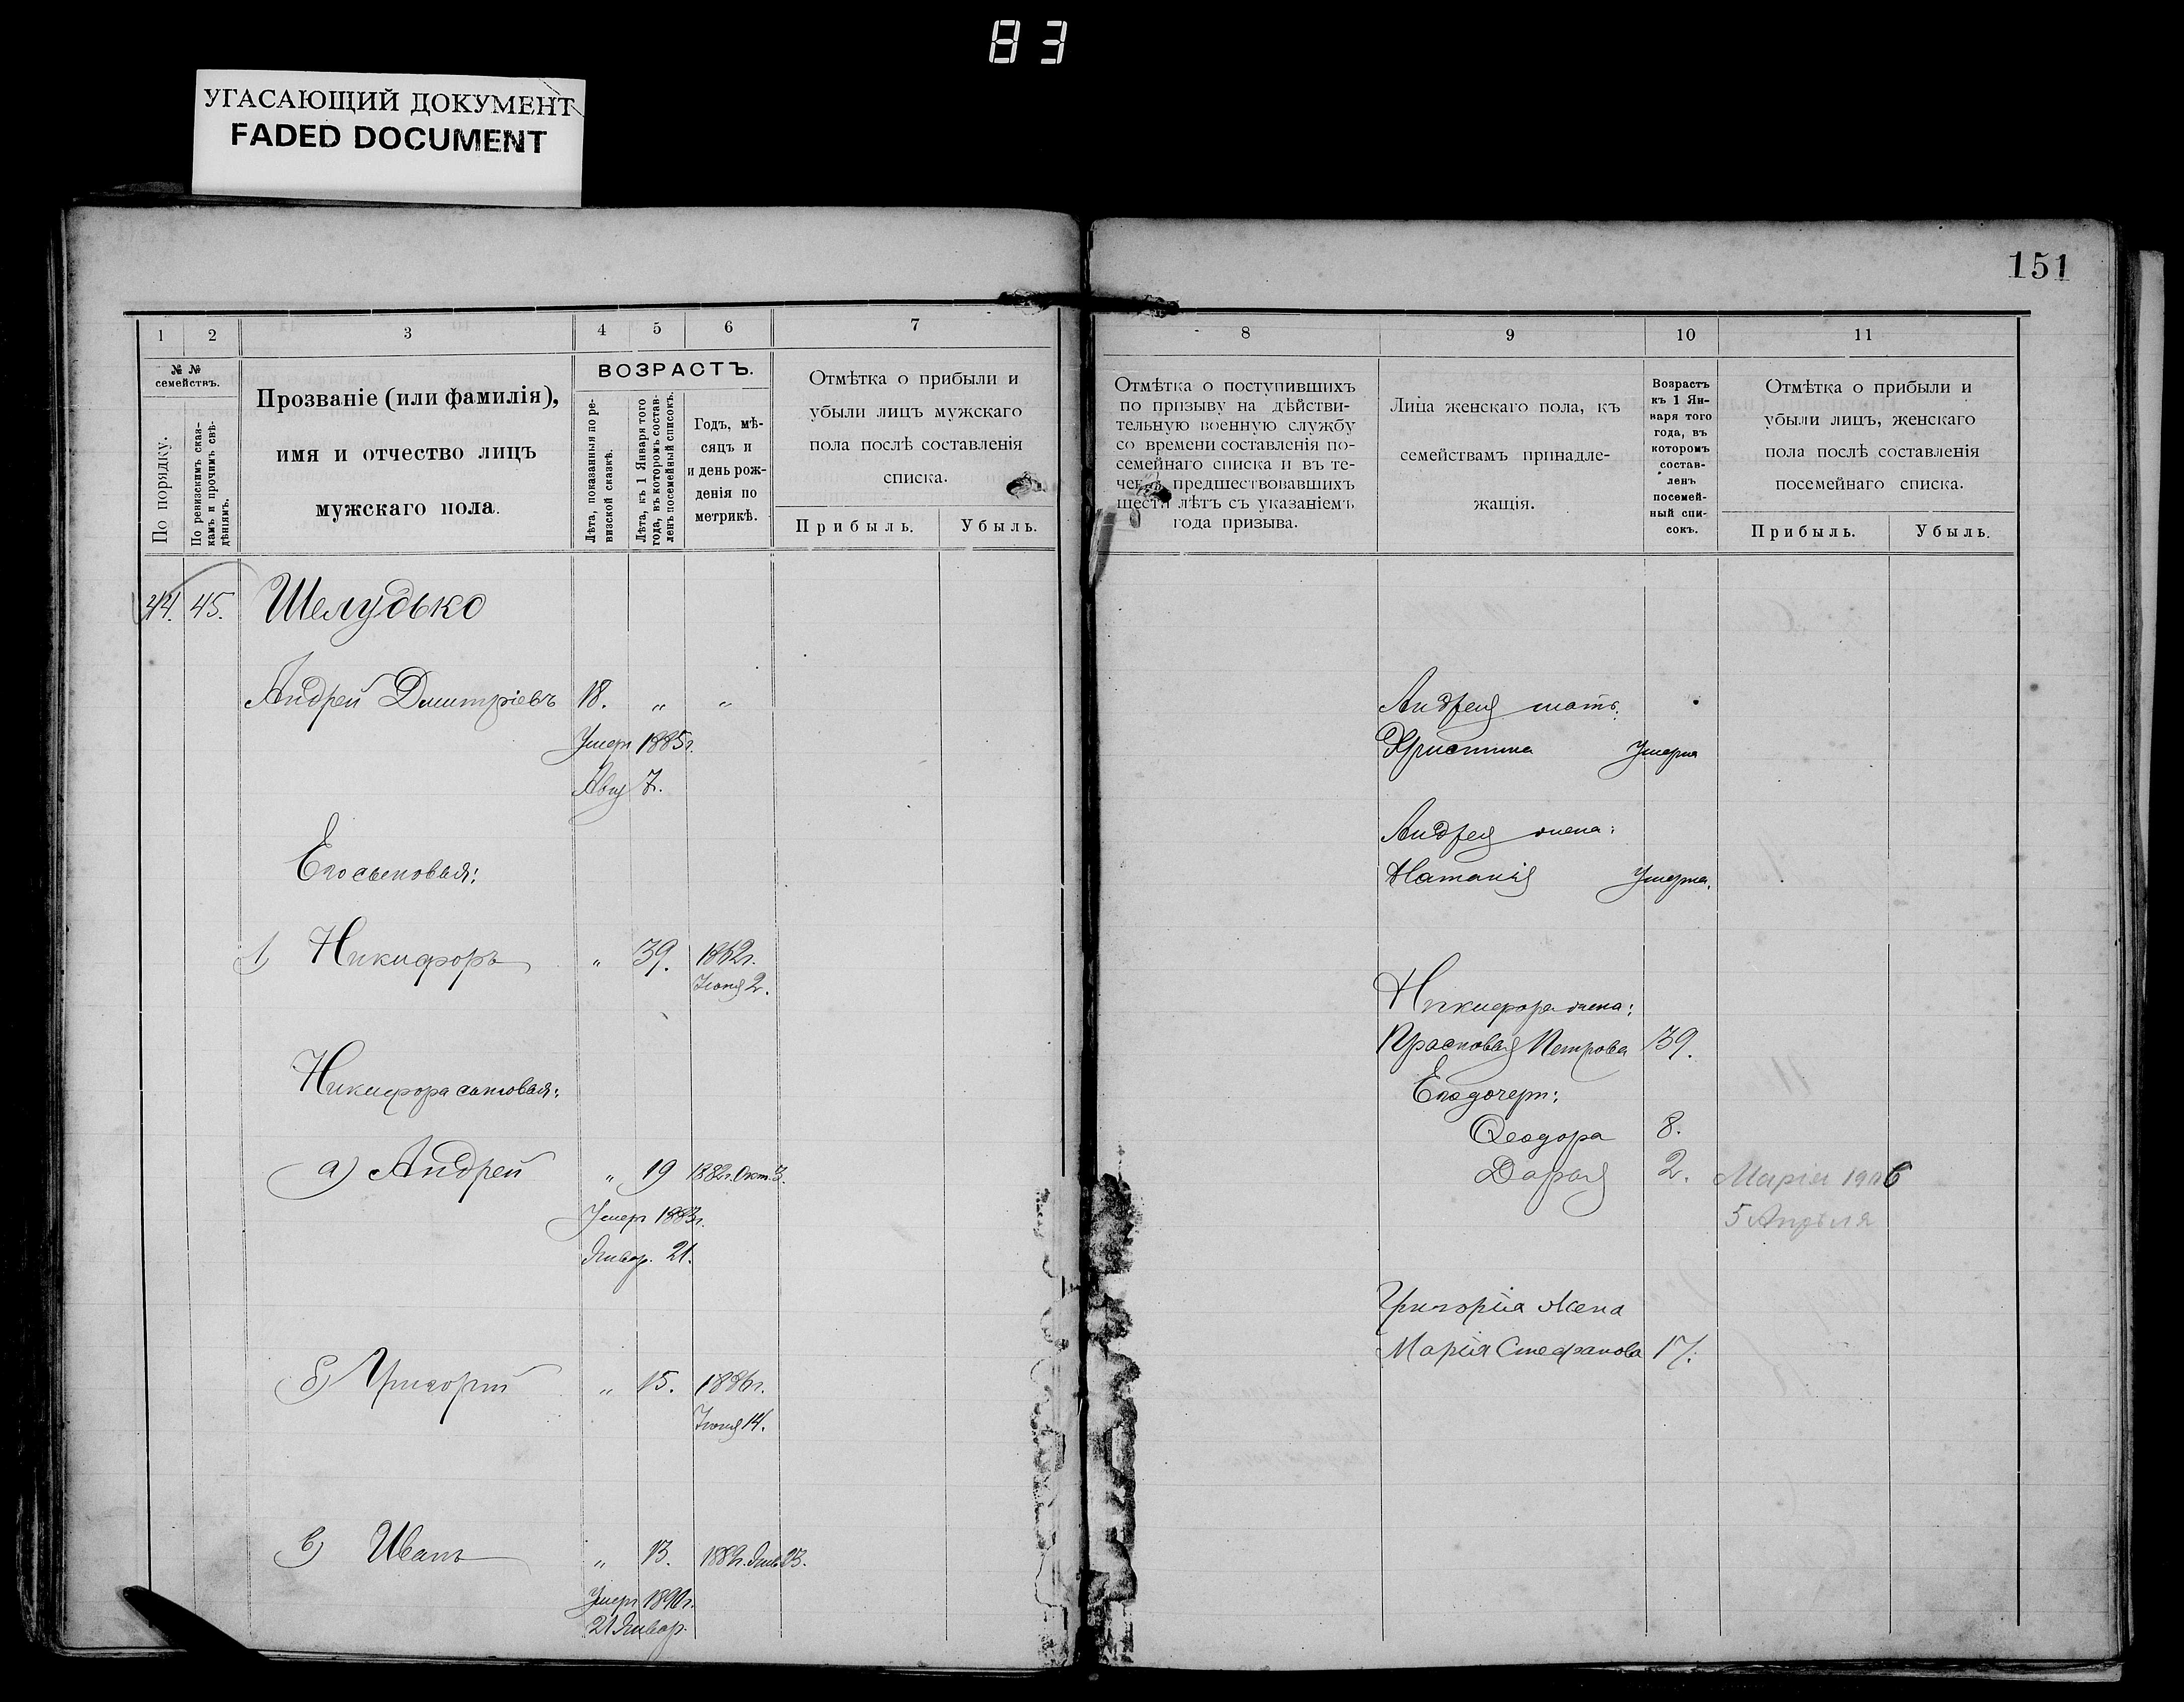 83
УГАСАЮЩИЙ ДОКУМЕНТ
FADED DOCUMENT
151
1 2 3 4 5 6 7
8 9 10 11
№ №
семействъ.
По порядку.
По ревизскимъ сказ-
камъ и прочимъ свѣ-
дѣніямъ.
Прозваніе (или фамилія),
имя и отчество лицъ
мужскаго пола.
ВОЗРАСТЪ.
Лѣта, показанныя по ре-
визской сказкѣ.
Лѣта, къ 1 Января того
года, въ которомъ состав-
ленъ посемейный списокъ.
Годъ, мѣ-
сяцъ и
и день рож-
денія по
метрикѣ.
Отмѣтка о прибыли и
убыли лицъ мужскаго
пола послѣ составленія
списка.
Прибыль. Убыль.
Отмѣтка о поступившихъ
по призыву на дѣйстви-
тельную военную службу
со времени составленія по-
семейнаго списка и въ те-
ченіе предшествовавшихъ
шести лѣтъ съ указаніемъ
года призыва.
Лица женскаго пола, къ
семействамъ принадле-
жащія.
Возрастъ
къ 1 Ян-
варя того
года, въ
которомъ
состав-
ленъ
посемей-
ный спи-
сокъ.
Отмѣтка о прибыли и
убыли лицъ, женскаго
пола послѣ составленія
посемейнаго списка.
Прибыль. Убыль.
44. 45. Шелудько
Андрей Дмитріевъ 18. „ „
Умеръ 1885г.
Авг 7.
Его сыновья:
1) Никифоръ „ 39. 1862г.
Іюня 2.
Никифора сыновья:
а) Андрей „ 19 1882г. Окт. 3.
Умеръ 1883г.
Январ. 21.
б) Григорій „ 15. 1886г.
Іюня 14.
в) Иванъ „ 13. 23.
Умеръ 1890г.
21 Январ.
Андрея мать:
Христина Умерла
Андрея жена:
Наталія Умерла.
Никифора жена:
Прасковья Петрова 39.
Его дочери:
Ѳеодора 8.
Дарья 2. Марія 1906
5 Апрѣля
Григорія жена
Марія Стефанова 17.